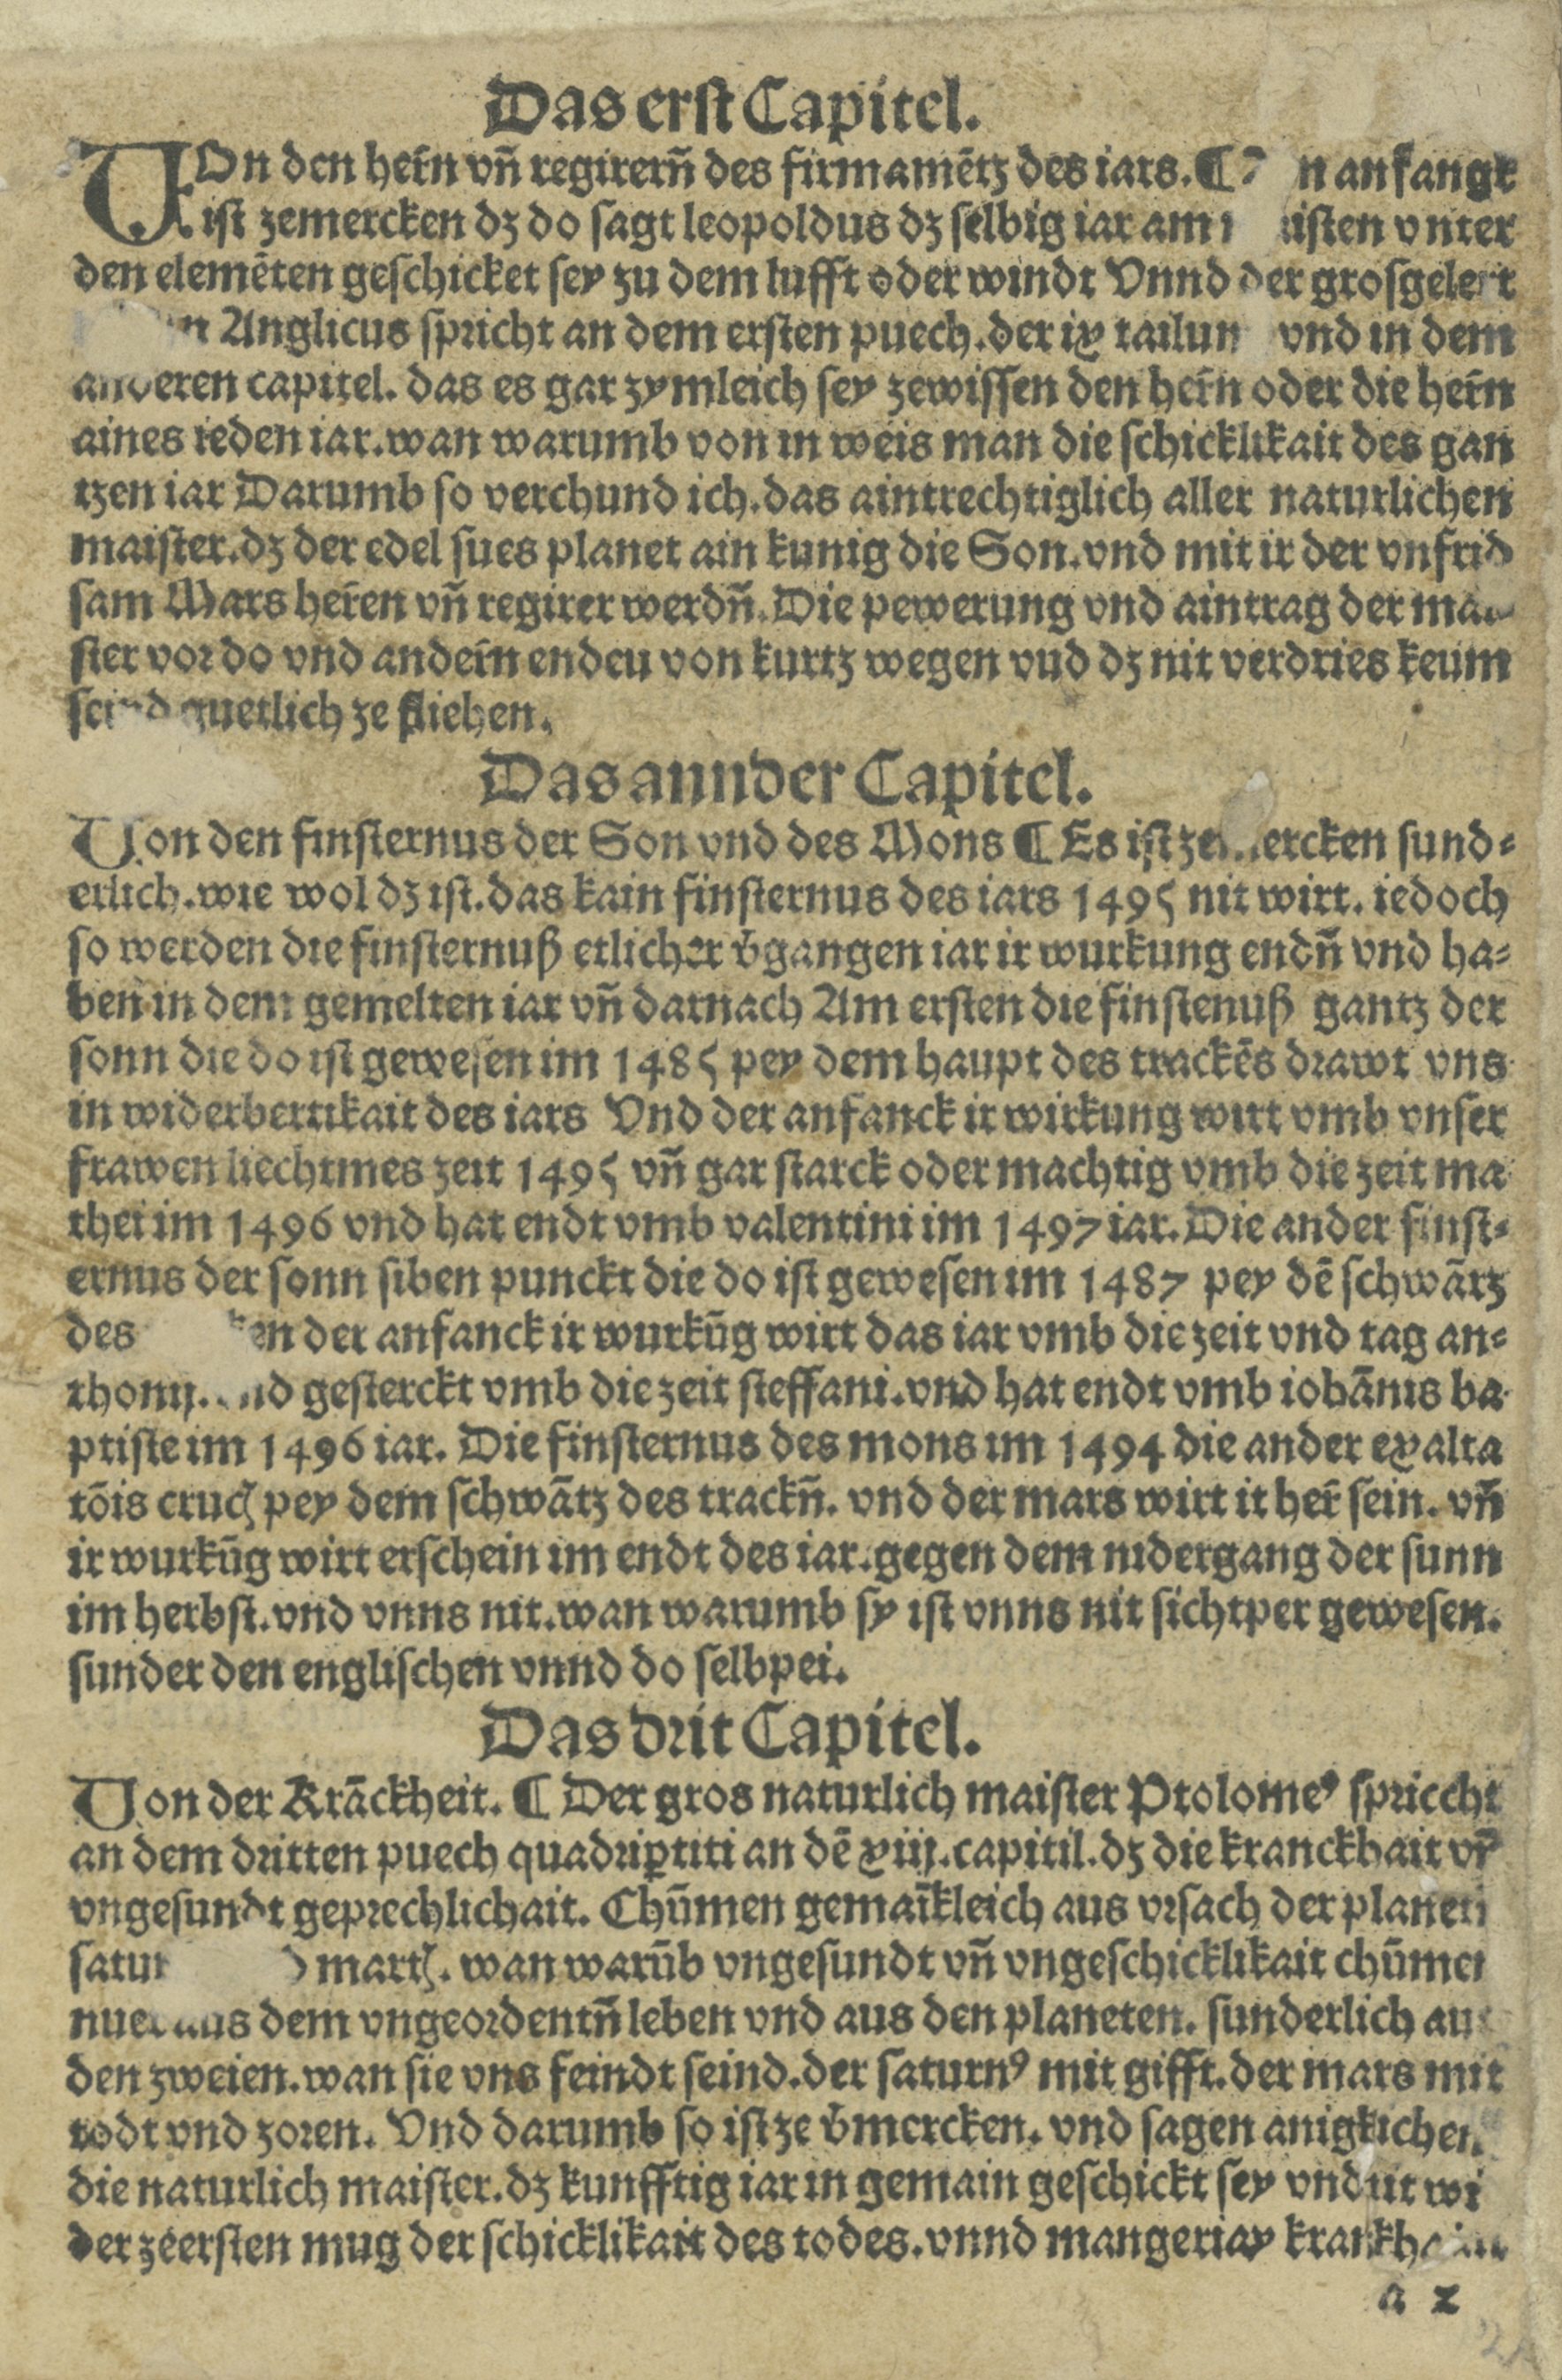 Das erst Capitel.
VOn den hern̄ vn̄ regirern̄ des firmamētz des iars. ¶ anfangk
ist zemercken dz do sagt leopoldus dz selbig iar am vnter
den elemēten geschicket sey zu dem lufft oder windt Vnnd der grosgelert
Anglicus spricht an dem ersten puech. der ix vnd in dem
anderen capitel. das es gar zymleich sey zewissen den hern̄ oder die hern̄
aines ieden iar. wan warumb von in weis man die schicklikait des gan
tzen iar Darumb so verchund ich. das aintrechtiglich aller naturlichen
maister. dz der edel sues planet ain kunig die Son. vnd mit ir der vnfrid
sam Mars heren̄ vn̄ regirer werdn̄. Die pewerung vnd aintrag der
ster vor do vnd andern̄ endeu von kurtz wegen vud dz nit verdries keum
guetlich ze fliehen.
Das annder Capitel.
Von den finsternus der Son vnd des Mons ¶ Es ist zemercken sund⸗
erlich. wie wol dz ist. das kain finsternus des iars 1495 nit wirt. iedoch
so werden die finsternuß etlicher v̄gangen iar ir wurkung endn̄ vnd ha⸗
ben in dem gemelten iar vn̄ darnach Am ersten die finstenuß gantz der
sonn die do ist gewesen im 1485 pey dem haupt des trackēs drawt vns
in widerbertikait des iars Vnd der anfanck ir wirkung wirt vmb vnser
frawen liechtmes zeit 1495 vn̄ gar starck oder machtig vmb die zeit ma
thei im 1496 vnd hat endt vmb valentini im 1497 iar. Die ander finst⸗
ernus der sonn siben punckt die do ist gewesen im 1487 pey dē schwātz
des der anfanck ir wurkūg wirt das iar vmb die zeit vnd tag an⸗
thonij. vnd gesterckt vmb die zeit steffani. vnd hat endt vmb iohānis ba
ptiste im 1496 iar. Die finsternus des mons im 1494 die ander exalta
tōis crucꝭ pey dem schwātz des trackn̄. vnd der mars wirt it her̄ sein. vn̄
ir wurkūg wirt erschein im endt des iar. gegen dem nidergang der sunn
im herbst. vnd vnns nit. wan warumb sy ist vnns nit sichtper gewesen.
sunder den englischen vnnd do selbpei.
Das drit Capitel.
Von der Krāckheit. ¶ Der gros naturlich maister Ptolomeꝰ spriccht
an dem dritten puech quadriꝑtiti an dē xiij. capitil. dz die kranckhait vn̄
vngesundt geprechlichait. Chūmen gemaīkleich aus vrsach der planeti
martꝭ. wan warūb vngesundt vn̄ vngeschicklikait chūmen
nuer aus dem vngeordentn̄ leben vnd aus den planeten. sunderlich aus
den zweien. wan sie vns feindt seind. der saturnꝰ mit gifft. der mars mit
todt vnd zoren. Vnd darumb so ist ze v̄mercken. vnd sagen anigklichen
die naturlich maister. dz kunfftig iar in gemain geschickt sey vnd nit wi
der zeersten mug der schicklikait des todes. vnnd mangeriay
a 2